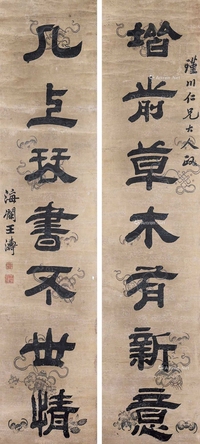 瑾川仁兄大人政
堦前草木有新意
几上琹書不世情
海闓王濤